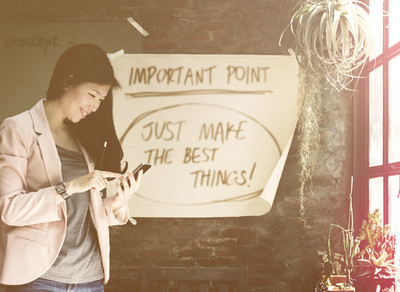 concept
IMPORTANT POINT
JUST MAKE
THE BEST
THINGS!